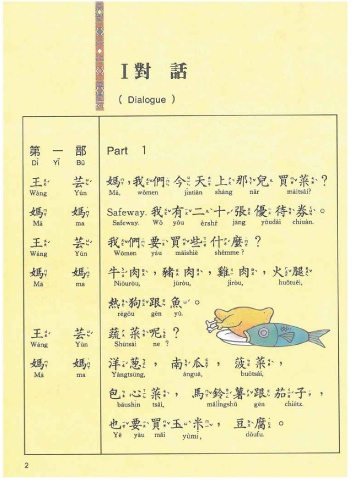 I 對 話
( Dialogue )
第 一 部 Part 1
Dì Yī Bù
王 芸 媽，我們今天上那兒買菜？
Wáng Yún Mā, wǒmen jīntiān shàng nǎr mǎitsài?
媽 媽 Safeway. 我有二十張優待券。
Mā ma Safeway. Wǒ yǒu èrshŕ jāng yōudài chiuàn.
王 芸 我們要買些什麼？
Wáng Yún Wǒmen yàu mǎishiē shémme?
媽 媽 牛肉，豬肉，雞肉，火腿
Mā ma Nióuròu, jūròu, jīròu, huǒtuěi,
熱狗跟魚。
règǒu gēn yú.
王 芸 蔬菜呢？
Wáng Yún Shūtsài ne ?
媽 媽 洋蔥，南瓜，菠菜，
Mā ma Yángtsūng, nánguā, buōtsài,
包心菜，馬鈴薯跟茄子，
bāushīn tsài, mǎlíngshǔ gēn chiétz.
也要買玉米，豆腐。
Yě yàu mǎi yùmǐ, dòufu.
2